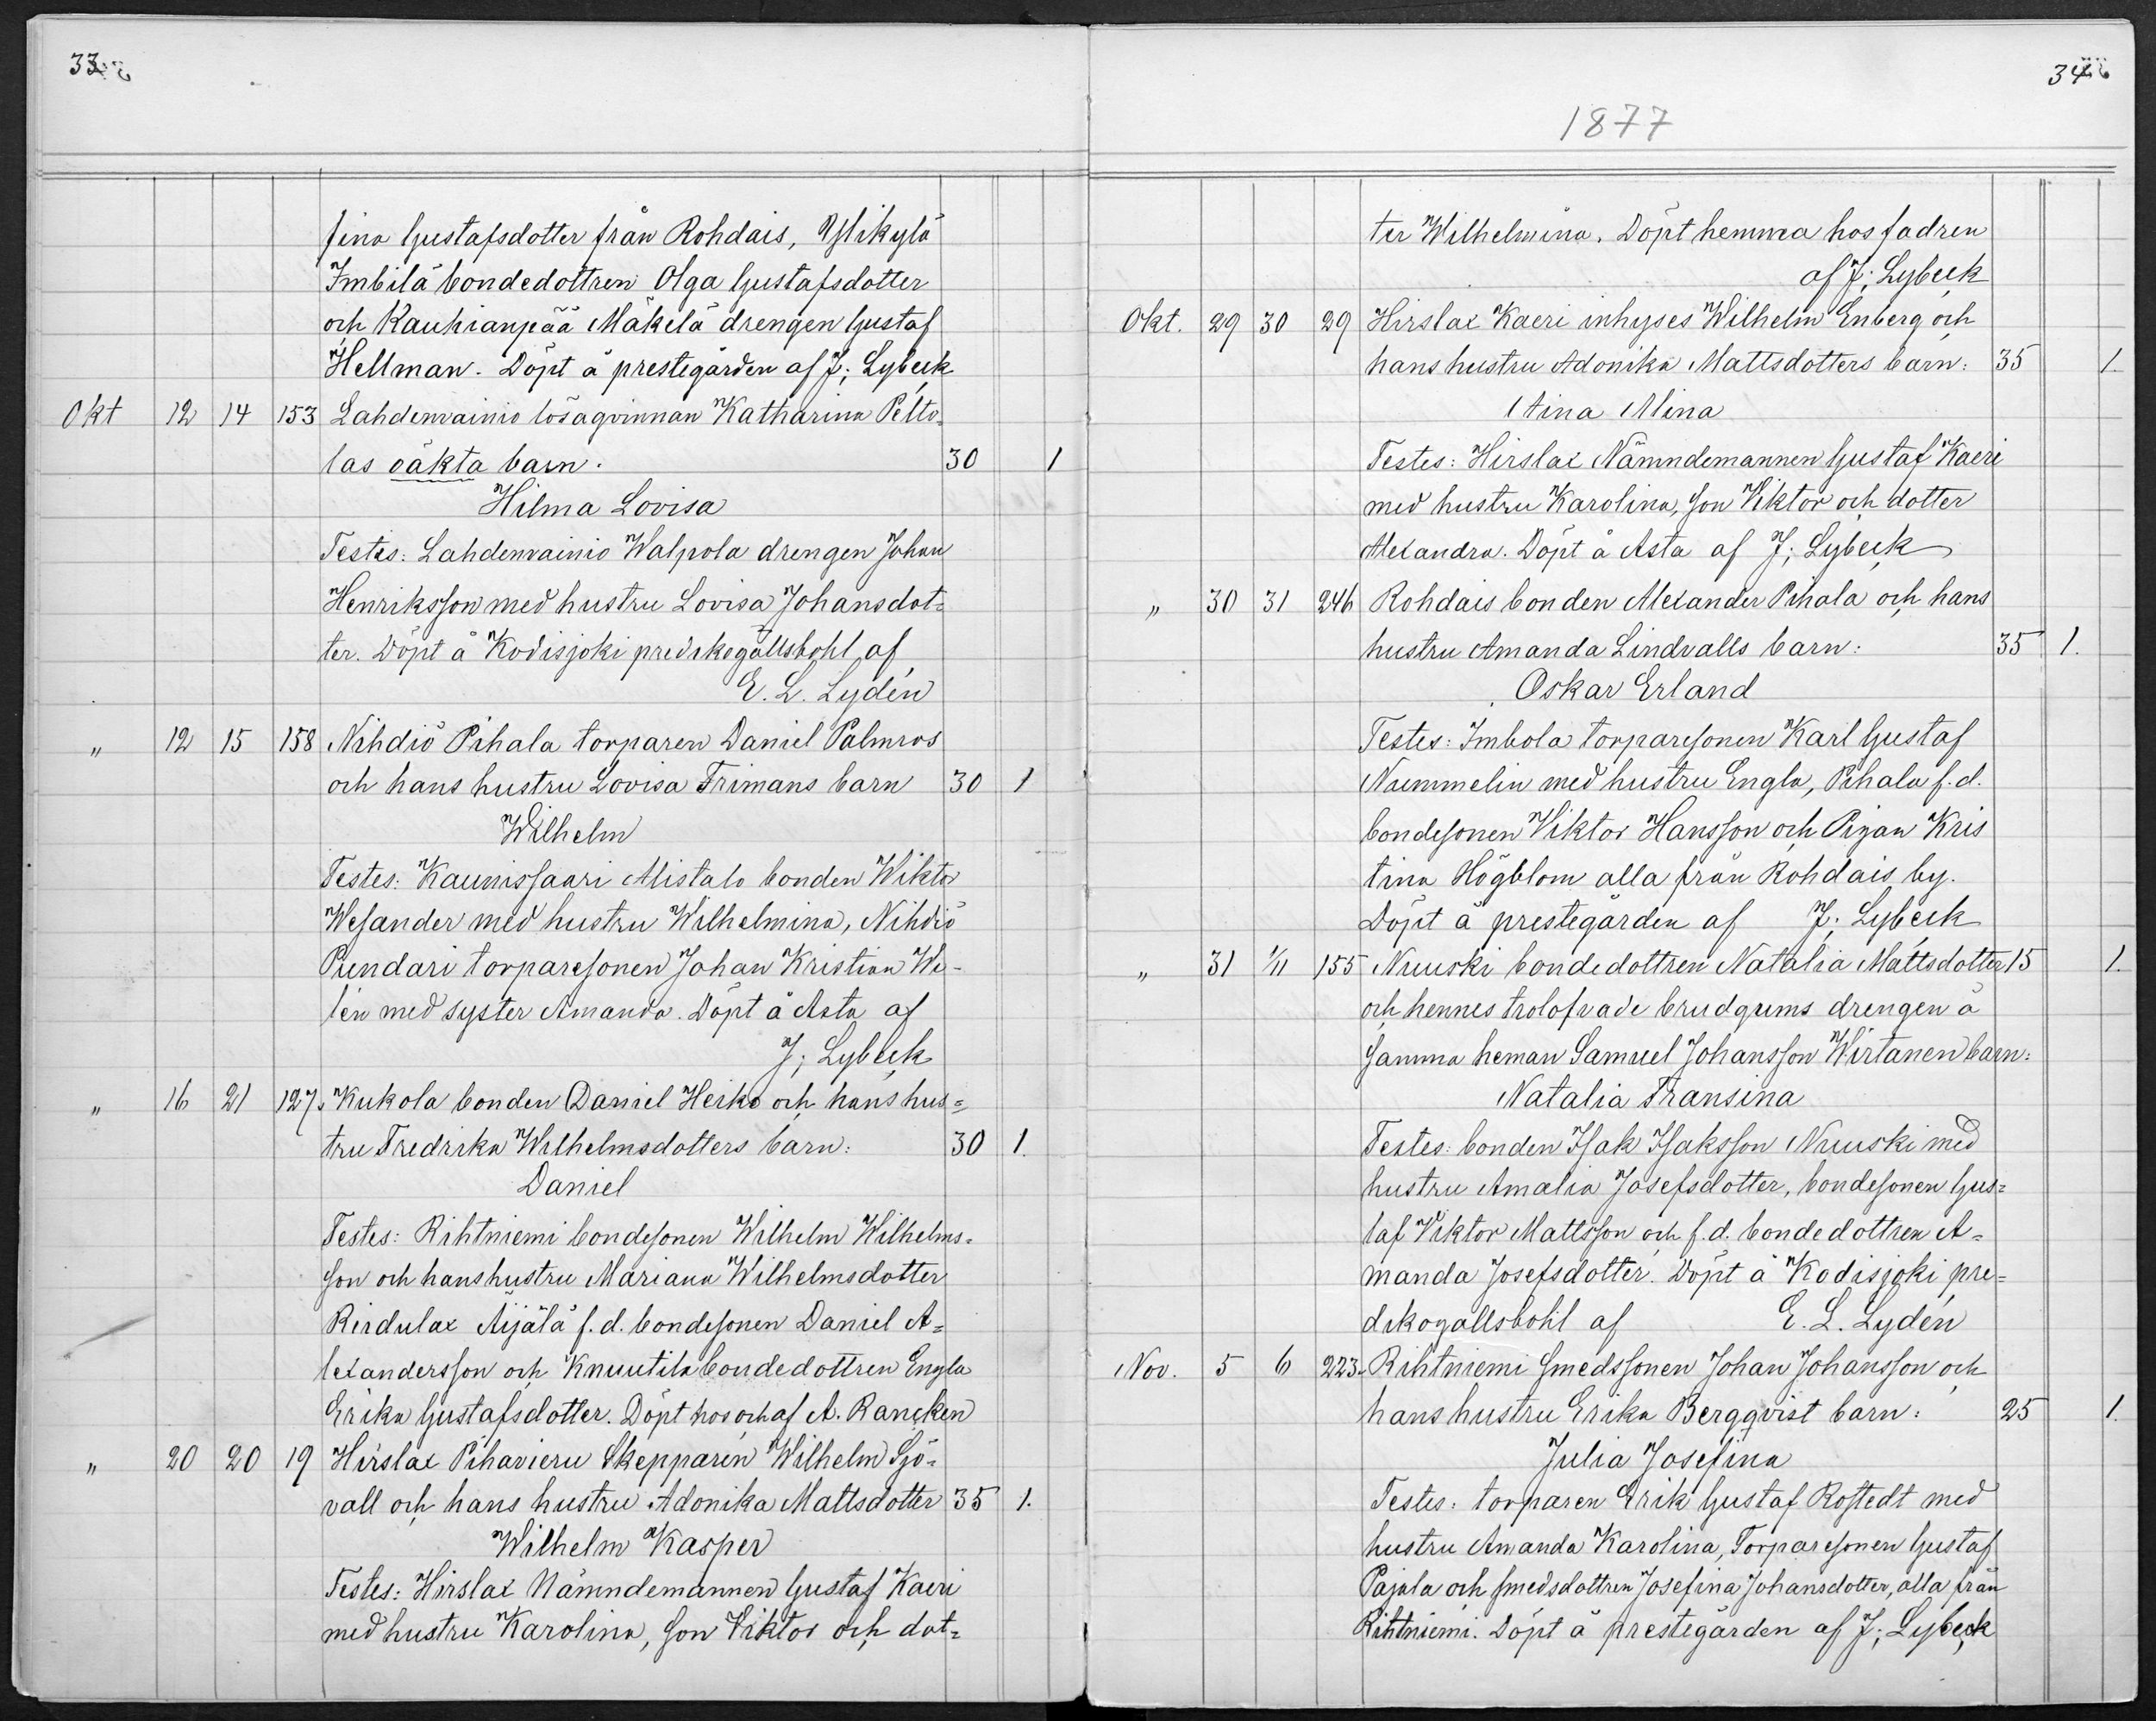 33
fina Gustafsdotter från Rohdais, Ylikylä
Imbilä bondedottren Olga Gustafsdotter
och Kauhianpää Mäkelä drengen Gustaf
Hellman. Döpt å prestegården af J; Lybeck
Okt 12 14 153 Lahdenvainio lösaqvinnan Katharina Pelto=
las oäkta barn. 30 1
Hilma Lovisa
Testes: Lahdenvainio Walpola drengen Johan
Henriksson med hustru Lovisa Johansdot=
ter. Döpt å Kodisjoki predikogällsbohl af
E. L. Lydén
" 12 15 158 Nihdiö Pihala torparen Daniel Palmros
och hans hustru Lovisa Trimans barn 30 1
Wilhelm
Testes: Kaunissaari Alistalo bonden Wiktor
Wesander med hustru Wilhelmina, Nihdiö
Pundari torparesonen Johan Kristian We-
lén med syster Amanda. Döpt å Asta af
J; Lybeck
" 16 21 127. Kukola bonden Daniel Heiko och hans hus=
tru Fredrika Wilhelmsdotters barn: 30 1.
Daniel
Testes: Rihtniemi bondesonen Wilhelm Wilhelms=
son och hans hustru Mariana Wilhelmsdotter
Rirdulax Äijälä f.d. bondesonen Daniel A=
lexandersson och Knuutila bondedottren Engla
Erika Gustafsdotter. Döpt hos och af A. Rancken
" 20 20 19 Hirslax Pihavieru Skepparen Wilhelm Sjö=
vall och hans hustru Adonika Mattsdotter 35 1.
Wilhelm Kasper
Testes: Hirslax Nämndemannen Gustaf Kaeri
med hustru Karolina, son Viktor och dot=
34
1877
ter Wilhelmina. Döpt hemma hos fadren
af J; Lybeck
Okt. 29 30 29 Hirslax Kaeri inhyses Wilhelm Enberg och
hans hustru Adonika Mattsdotters barn: 35 1.
Aina Alina
Testes: Hirslax Nämndemannen Gustaf Kaeri
med hustru Karolina, son Viktor och dotter
Alexandra. Döpt å Asta af J; Lybeck
" 30 31 246 Rohdais bonden Alexander Pihala och hans
hustru Amanda Lindvalls barn: 35 1.
Oskar Erland
Testes: Imbola torparesonen Karl Gustaf
Nummelin med hustru Engla, Pihala f.d.
bondesonen Viktor Hansson och Pigan Kris
tina Högblom alla från Rohdais by.
Döpt å prestegården af J; Lybeck
" 31 1/11 155 Nuuski bondedottren Natalia Mattsdotter 15 1.
och hennes trolofvade brudgums drengen å
samma heman Samuel Johansson Wirtanen barn:
Natalia Fransina
Testes: bonden Isak Isaksson Nuuski med
hustru Amalia Josefsdotter, bondesonen Gus=
taf Viktor Mattsson och f.d. bondedottren A=
manda Josefsdotter. Döpt å Kodisjoki pre=
dikogällsbohl af E. L. Lydén
Nov. 5 6 223. Rihtniemi smedssonen Johan Johansson och
hans hustru Erika Bergqvist barn: 25 1.
Julia Josefina
Testes: torparen Erik Gustaf Rostedt med
hustru Amanda Karolina, Torparesonen Gustaf
Pajala och smedsdottren Josefina Johansdotter, alla från
Rihtniemi. Döpt å prestegården af J; Lybeck